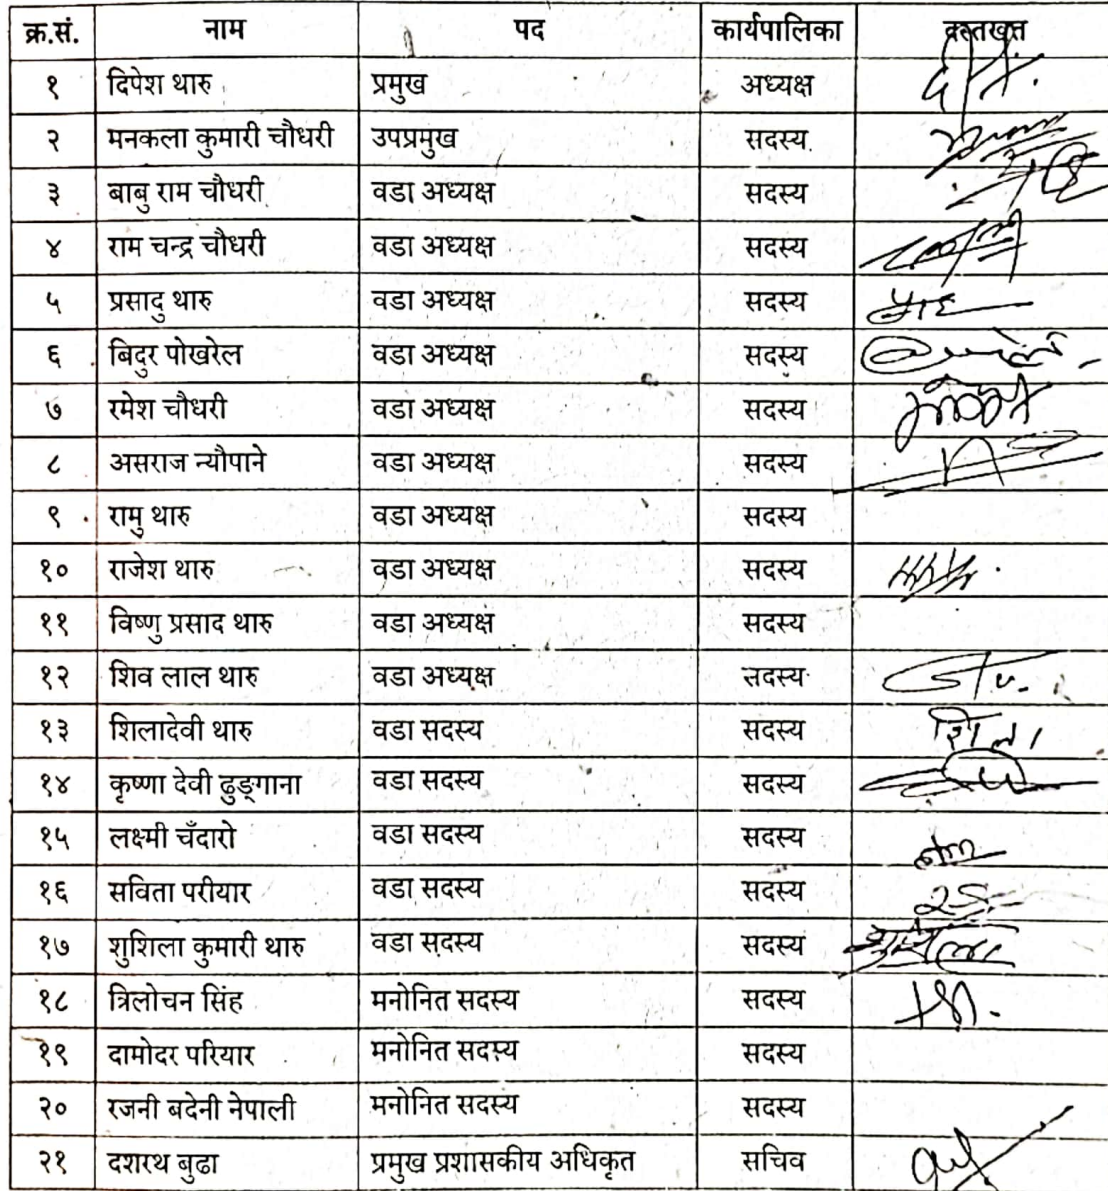 क्र.सं. नाम पद कार्यपालिका दस्तखत
१ दिपेश थारु प्रमुख अध्यक्ष
२ मनकला कुमारी चौधरी उपप्रमुख सदस्य
३ बाबु राम चौधरी वडा अध्यक्ष सदस्य
४ राम चन्द्र चौधरी वडा अध्यक्ष सदस्य
५ प्रसादु थारु वडा अध्यक्ष सदस्य
६ बिदुर पोखरेल वडा अध्यक्ष सदस्य
७ रमेश चौधरी वडा अध्यक्ष सदस्य
८ असराज न्यौपाने वडा अध्यक्ष सदस्य
९ रामु थारु वडा अध्यक्ष सदस्य
१० राजेश थारु वडा अध्यक्ष सदस्य
११ विष्णु प्रसाद थारु वडा अध्यक्ष सदस्य
१२ शिव लाल थारु वडा अध्यक्ष सदस्य
१३ शिलादेवी थारु वडा सदस्य सदस्य शिला
१४ कृष्णा देवी ढुङ्गाना वडा सदस्य सदस्य
१५ लक्ष्मी चँदारो वडा सदस्य सदस्य
१६ सविता परीयार वडा सदस्य सदस्य
१७ शुशिला कुमारी थारु वडा सदस्य सदस्य
१८ त्रिलोचन सिंह मनोनित सदस्य सदस्य
१९ दामोदर परियार मनोनित सदस्य सदस्य
२० रजनी बदेनी नेपाली मनोनित सदस्य सदस्य
२१ दशरथ बुढा प्रमुख प्रशासकीय अधिकृत सचिव